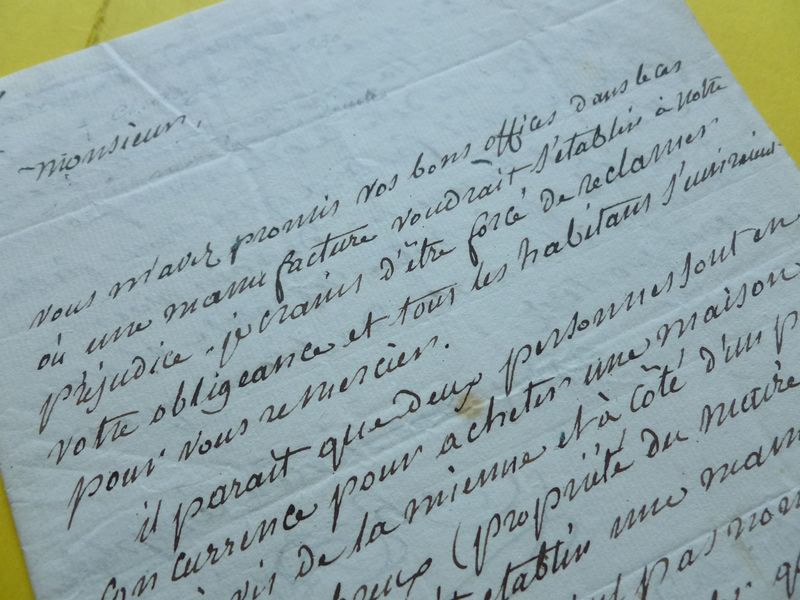 monsieur,
vous m'avez promis vos bons offices dans le cas
où une manufacture voudrait s'établir à notre
préjudice - je crains d'être forcé de reclamer
votre obligeance et tous les habitans s'uniraient
pour vous remercier.
il parait que deux personnes sont en
concurrence pour acheter une maison
vis de la mienne et à côté d'un
(propriété du maire
établir une
pas